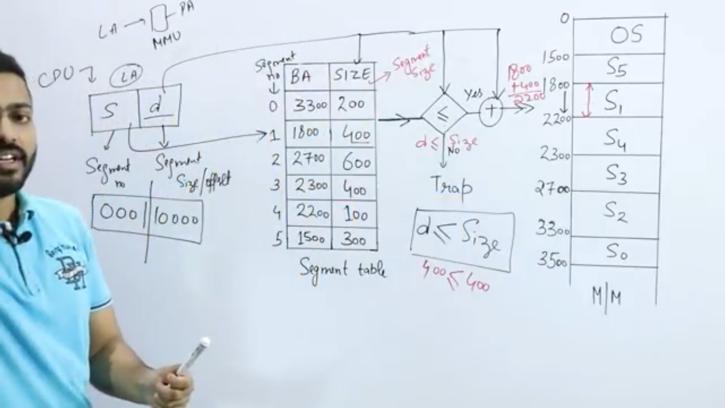 LA → PA
MMU
CPU
LA
S d
Segment no
Segment Size/offset
0001 10000
Segment no
BA SIZE
0 3300 200
1 1800 400
2 2700 600
3 2300 400
4 2200 100
5 1500 300
Segment table
Segment Size
≤
Yes
+
d ≤ Size
No
Trap
d ≤ Size
400 ≤ 400
1800
+400
2200
0
OS
1500
S5
1800
S1
2200
S4
2300
S3
2700
S2
3300
S0
3500
M/M